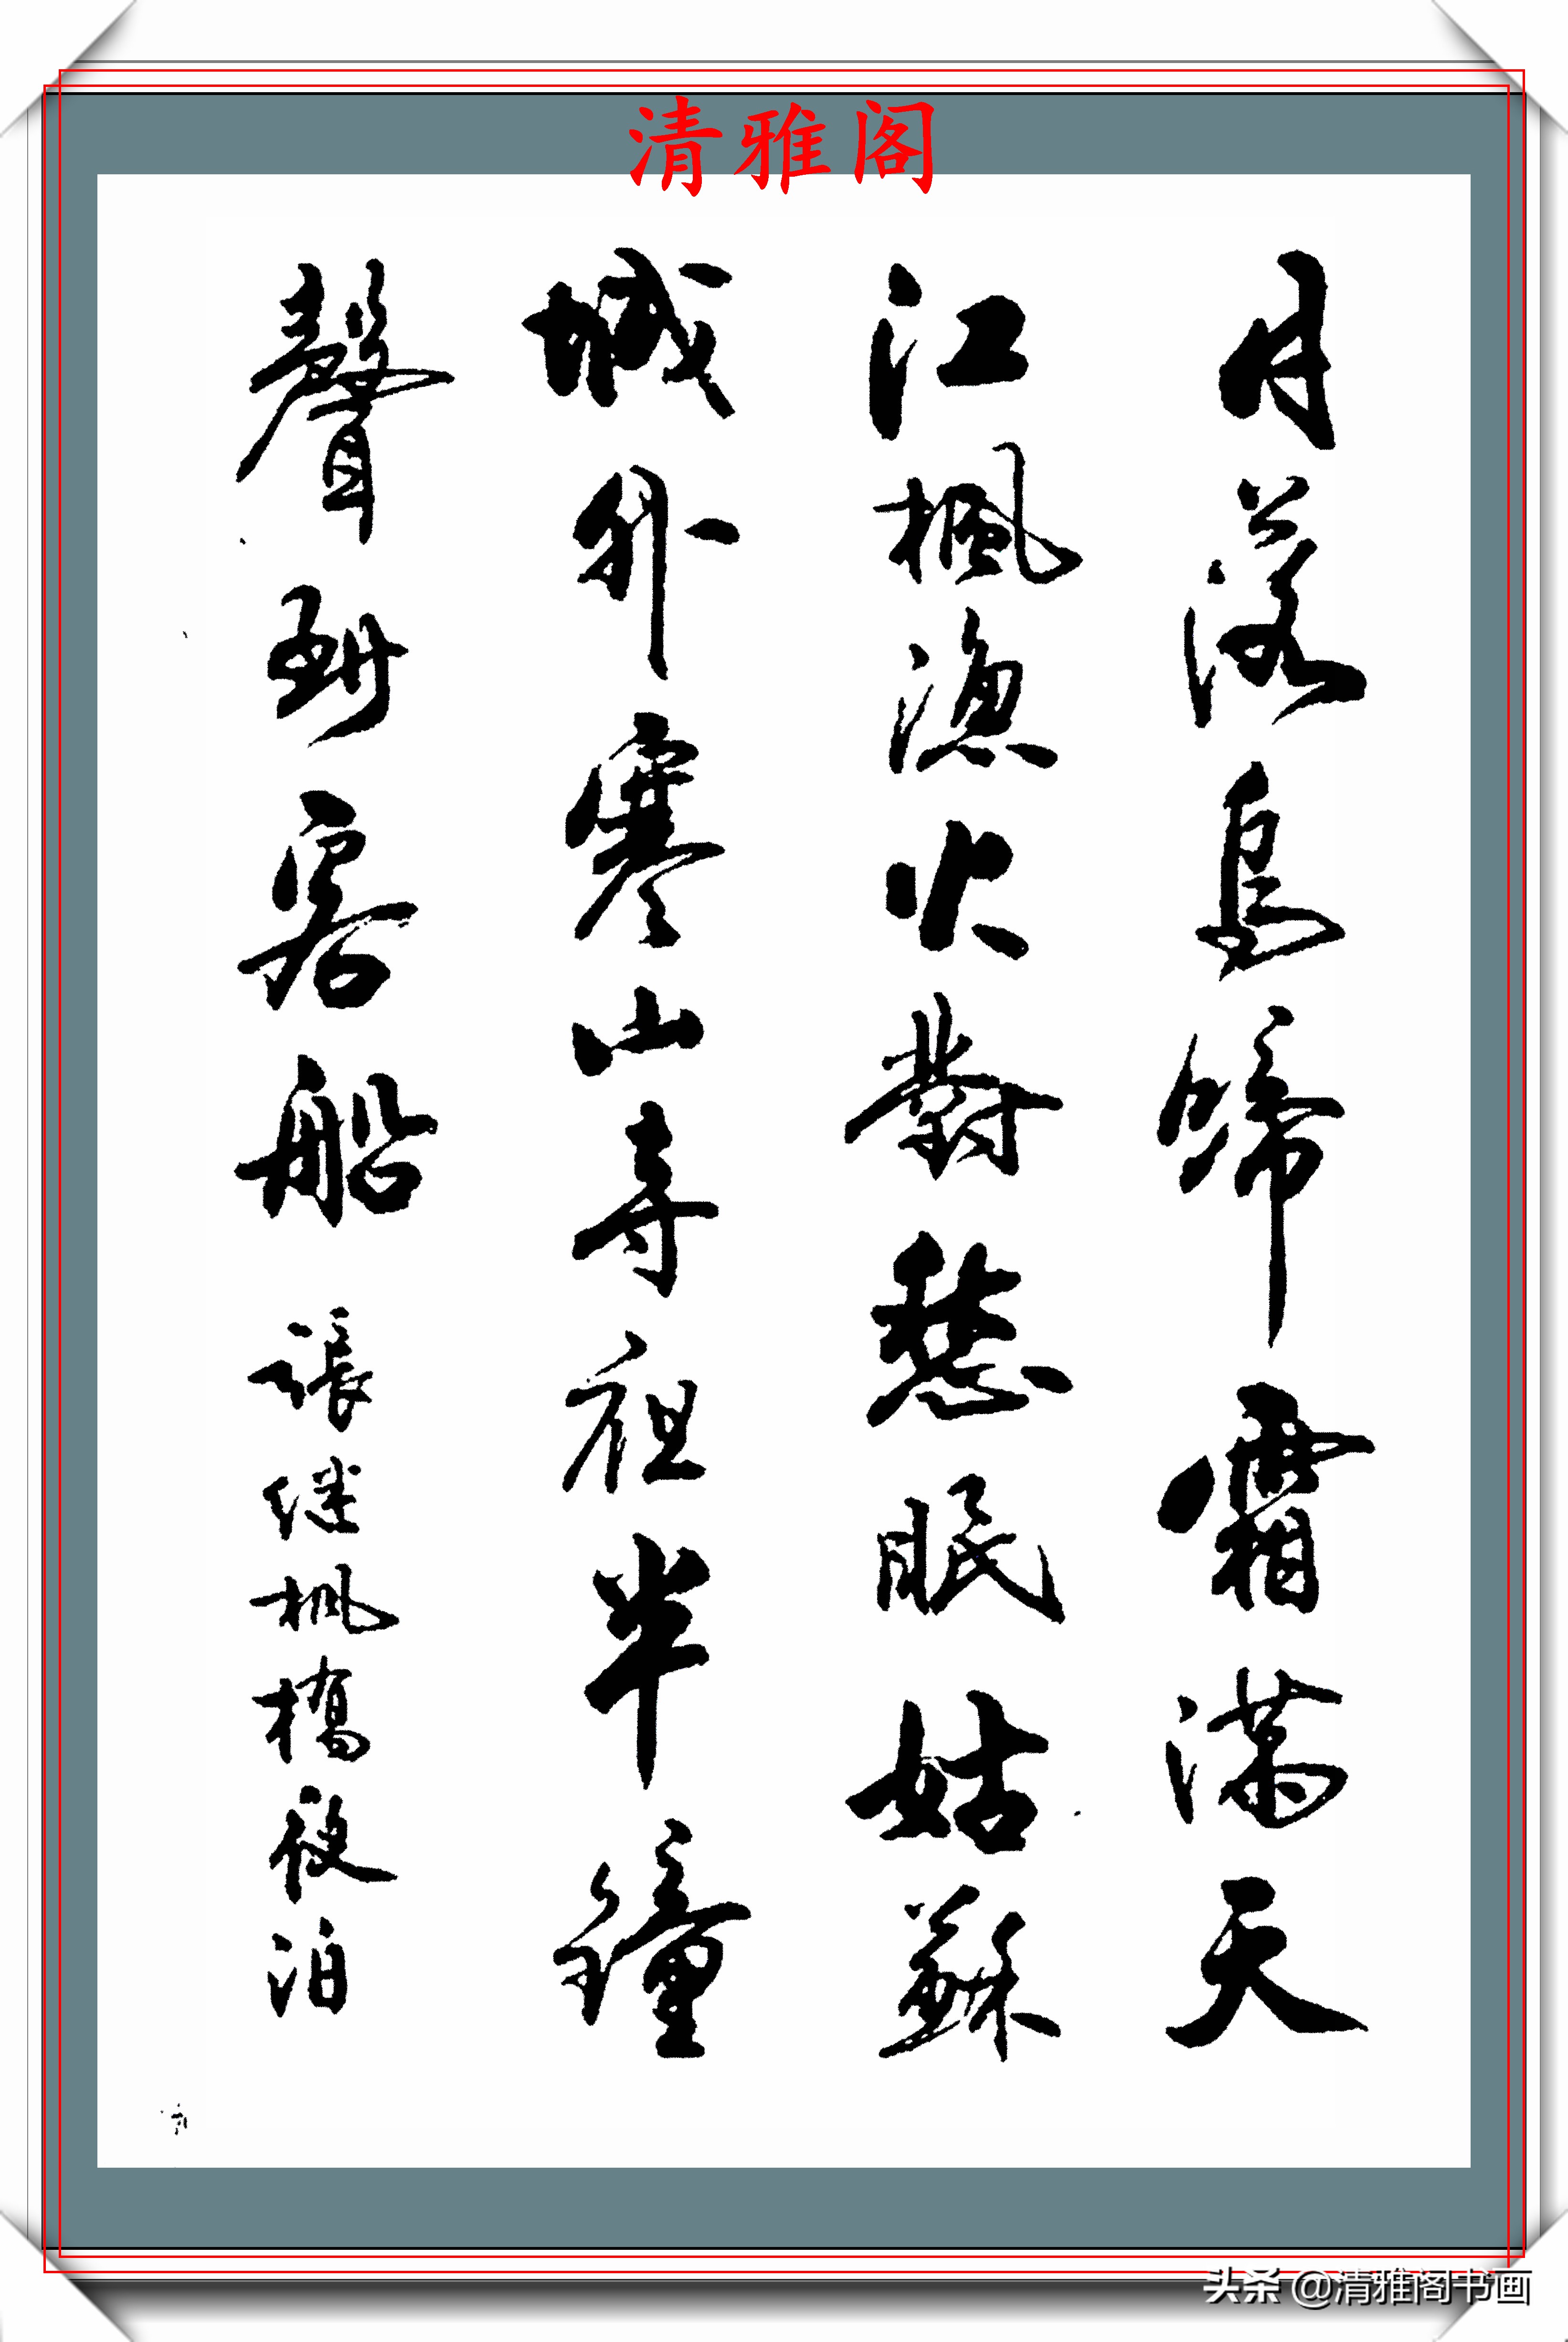 清雅阁
月落烏啼霜滿天
江楓漁火對愁眠姑蘇
城外寒山寺夜半鐘
聲到客船 張継枫橋夜泊
头条 @清雅阁书画